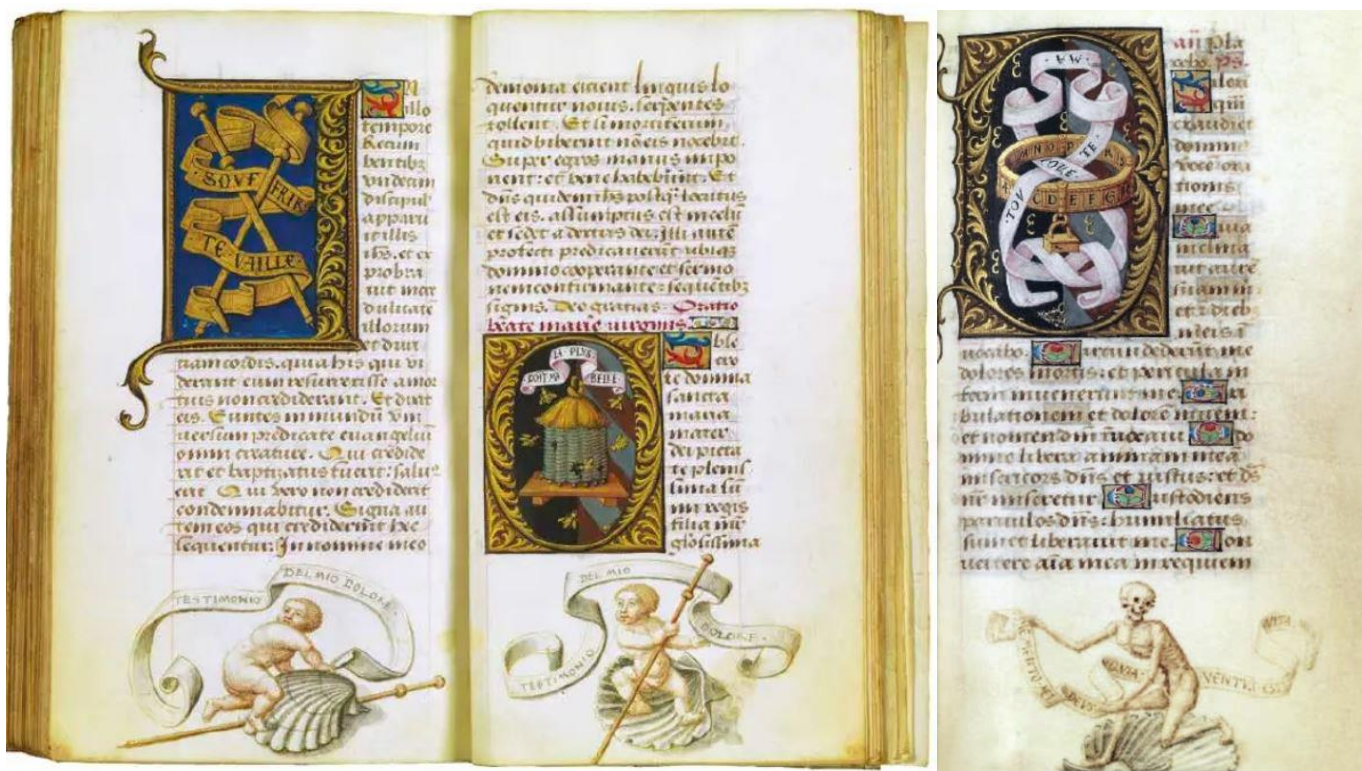 SOVF FRIR
TE VAILLE
N
illo
tempore
Recum
bentibꝫ
vndecim
discipul
apparu
it illis
ihs. et ex
probra
uit incre
dulitatē
illorum
et duri
tiam cordis. quia his qui vi
derant eum resurrexisse a mor
tuis non crediderant. Et dixit
eis. Euntes in mundū vni
uersum predicate euangeliū
omni creature. Qui credide
rit et baptizatus fuerit: saluꝰ
erit Qui vero non crediderit
condemnabitur. Signa au
tem eos qui crediderint hec
sequentur: In nomine meo
TESTIMONIO DEL MIO DOLORE
demonia eicient linguis lo
quentur nouis. serpentes
tollent. Et si mortiferum
quid biberint nō eis nocebit.
Super egros manus impo
nent: et bene habebunt. Et
dns quidem ihs postq̄ locutus
est eis. assumptus est in celū
et sedet a dextris dei. Illi autē
profecti predicauerūt vbiqꝫ
domino cooperante et sermo
nem confirmante: sequētibꝫ
signis. Deo gratias. Oratio
beate marie virginis
LA PLVS
DOIT MA BELLE
te domina
sancta
maria
mater
dei pieta
te plenis
sima sum
mi regis
filia mr̄
gl̄osissima
DEL MIO
DOLORE
TESTIMONIO
añ pla
cebo. Ps
ilexi
qm̄
exaudiet
dominꝰ
vocē ora
tionis
mee
uia
inclina
uit aurē
suam m
et ī dieb
meis ī
uocabo. ircumdederūt me
dolores mortis: et pericula in
ferni inuenerunt me.
bulationem et dolorē inueni:
et nomen dn̄i īuocaui
mine libera animam meā
misericors dn̄s et iustus: et d̄s
nr̄ miseretur ustodiens
paruulos dn̄s: humiliatus
sum et liberauit me. on
uertere aīa mea in requiem
A M
TE
VOT
C D E F G
MEMENTO MEI DEVS QVIA VENTVS EST VITA